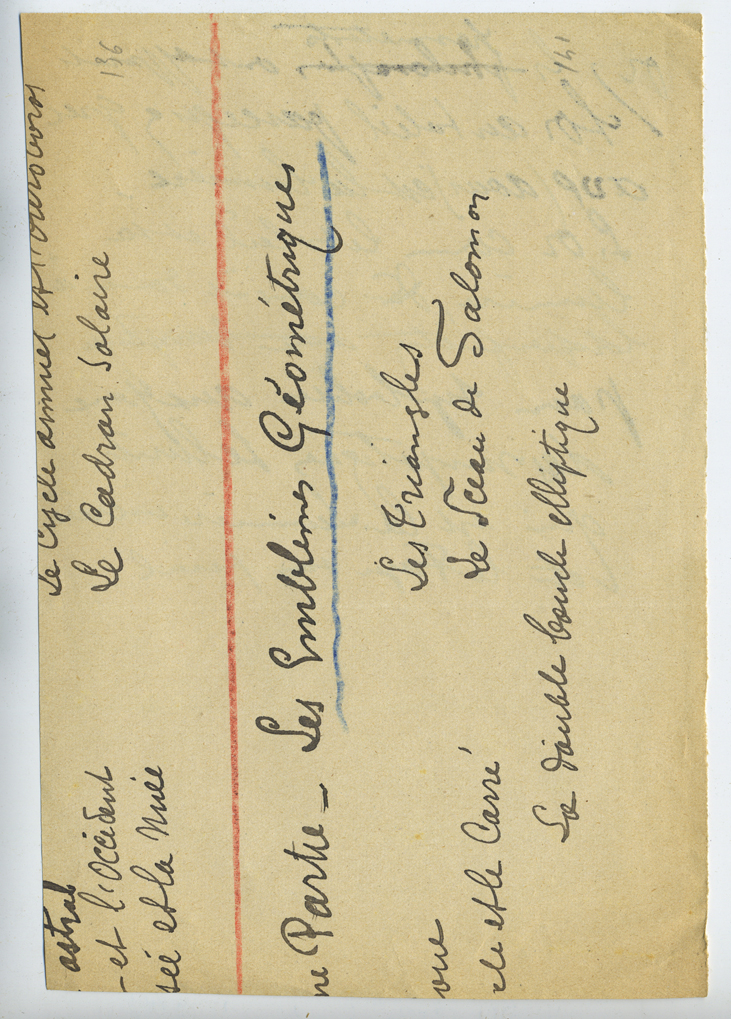 astral
Le Cycle annuel et l'Ouroboros
- et l'Occident
Le Cadran Solaire
136
sée et la Nuée
ne Partie - Les Emblèmes Géométriques
Les Triangles
Le Sceau de Salomon
cle et le Carré
La double boucle elliptique
141